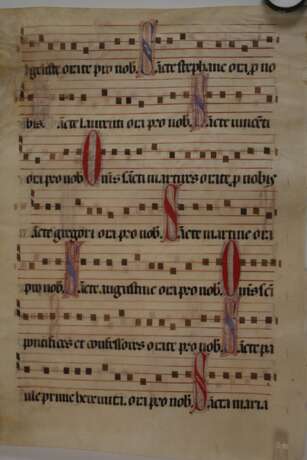 orate pro nob. Sācte stephane ora p no
bis. Sācte laurenti ora pro nob. Sācte vincēti
ora pro nob. Om̄s sācti martires orate p nobis
Sācte gregori ora pro nob. Sācte martine ora
pro nob. Sācte augustine ora pro nob. Om̄s scī
pontifices et confessores orate pro nob. Sācte pa
ule prime heremita. ora pro nob. Sācta maria